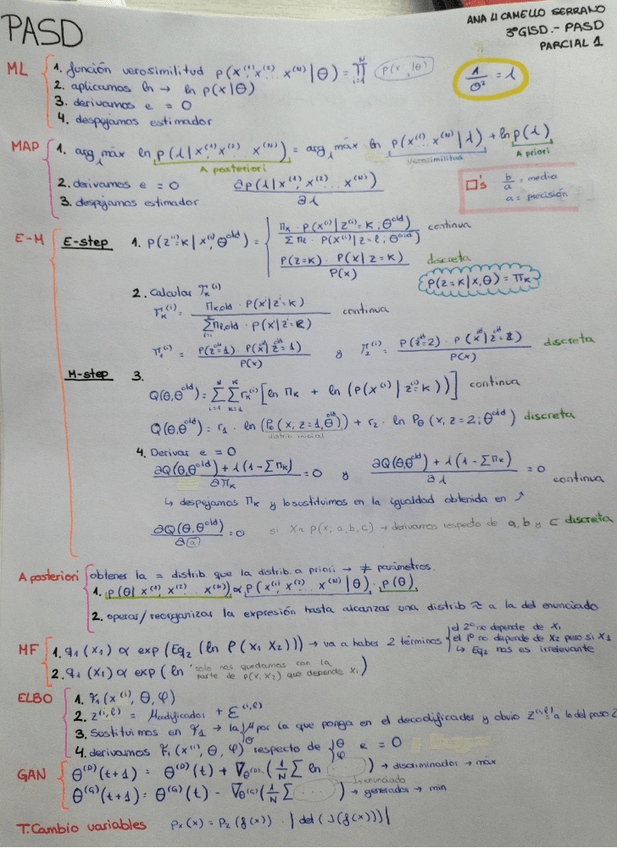 PASD
ANA LI CAMELLO SERRANO
3ºGISD. - PASD
PARCIAL 1
ML
1. función verosimilitud p(x⁽¹⁾, x⁽²⁾ ... x⁽ᴺ⁾|θ) = ∏ᵢ₌₁ᴺ p(x, |θ)
1/σ² = λ
2. aplicamos ln → ln p(x|θ)
3. derivamos e = 0
4. despejamos estimador
MAP
1. arg_λ máx ln p(λ|x⁽¹⁾, x⁽²⁾ ... x⁽ᴺ⁾) = arg_λ máx ln p(x⁽¹⁾ ... x⁽ᴺ⁾|λ) + ln p(λ)
A posteriori verosimilitud A priori
2. derivamos e = 0 ∂p(λ|x⁽¹⁾, x⁽²⁾ ... x⁽ᴺ⁾)/∂λ
3. despejamos estimador
□'s b/a = media
a = precisión
E-M
E-step
1. p(z⁽ⁱ⁾=k|x⁽ⁱ⁾, θ^old) = { Πk · p(x⁽ⁱ⁾|z⁽ⁱ⁾=k, θ^old) / ΣΠℓ · p(x⁽ⁱ⁾|z=ℓ, θ^old) continua
p(z=k) · p(x|z=k) / p(x) discreta
p(z=k|x,θ) = Πk
2. Calcular r_k⁽ⁱ⁾
r_k⁽ⁱ⁾ = Πk old · p(x|z=k) / ΣΠℓ old · p(x|z=ℓ) continua
r₁⁽ⁱ⁾ = p(z=1) · p(x|z=1) / p(x) y r₂⁽ⁱ⁾ = p(z=2) · p(x|z=2) / p(x) discreta
M-step
3.
Q(θ,θ^old) = Σᵢ₌₁ᴺ Σₖ₌₁ᴷ r_k⁽ⁱ⁾ [ln Πk + ln (p(x⁽ⁱ⁾|z⁽ⁱ⁾=k))] continua
Q(θ,θ^old) = r₁ · ln (Pθ(x, z=1, θ^old)) + r₂ · ln Pθ(x, z=2; θ^old) discreta
distrib inicial
4. Derivar e = 0
∂Q(θ,θ^old) + λ(1-ΣΠk) / ∂Πk = 0 y ∂Q(θ,θ^old) + λ(1-ΣΠk) / ∂λ = 0 continua
↳ despejamos Πk y lo sustituimos en la igualdad obtenida en ↗
∂Q(θ,θ^old)/∂a = 0 si X ~ p(x, a, b, c) → derivamos respecto de a, b y c discreta
A posteriori
obtener la = distrib que la distrib. a priori → ≠ parámetros.
1. p(θ|x⁽¹⁾, x⁽²⁾ ... x⁽ᴺ⁾) ∝ p(x⁽¹⁾, x⁽²⁾ ... x⁽ᴺ⁾|θ) · p(θ)
2. operar/reorganizar la expresión hasta alcanzar una distrib ≈ a la del enunciado
MF
1. q₁(x₁) ∝ exp(Eq₂(ln p(x₁ x₂))) → va a haber 2 términos
el 2º no depende de x₁
el 1º no depende de x₂ pero sí x₁
↳ Eq₂ nos es irrelevante
2. q₁(x₁) ∝ exp(ln "solo nos quedamos con la parte de p(x₁ x₂) que depende x₁)
ELBO
1. F₁(x⁽ⁱ⁾, θ, φ)
2. z⁽ⁱ,ℓ⁾ = μcodificador + ε⁽ⁱ,ℓ⁾
3. Sustituimos en F₁ → la μ por la que ponga en el decodificador y obvio z⁽ⁱ,ℓ⁾ a lo del paso 2
4. derivamos F₁(x⁽ⁱ⁾, θ, φ) respecto de θ φ e = 0
GAN
θ⁽ᴰ⁾(t+1) = θ⁽ᴰ⁾(t) + ∇θ⁽ᴰ⁾ (1/N Σ ln ...) → discriminador → máx
enunciado
θ⁽ᴳ⁾(t+1) = θ⁽ᴳ⁾(t) - ∇θ⁽ᴳ⁾ (1/N Σ ...) → generador → min
T.Cambio variables Px(x) = Pz(f(x)) · |det(J(f(x)))|